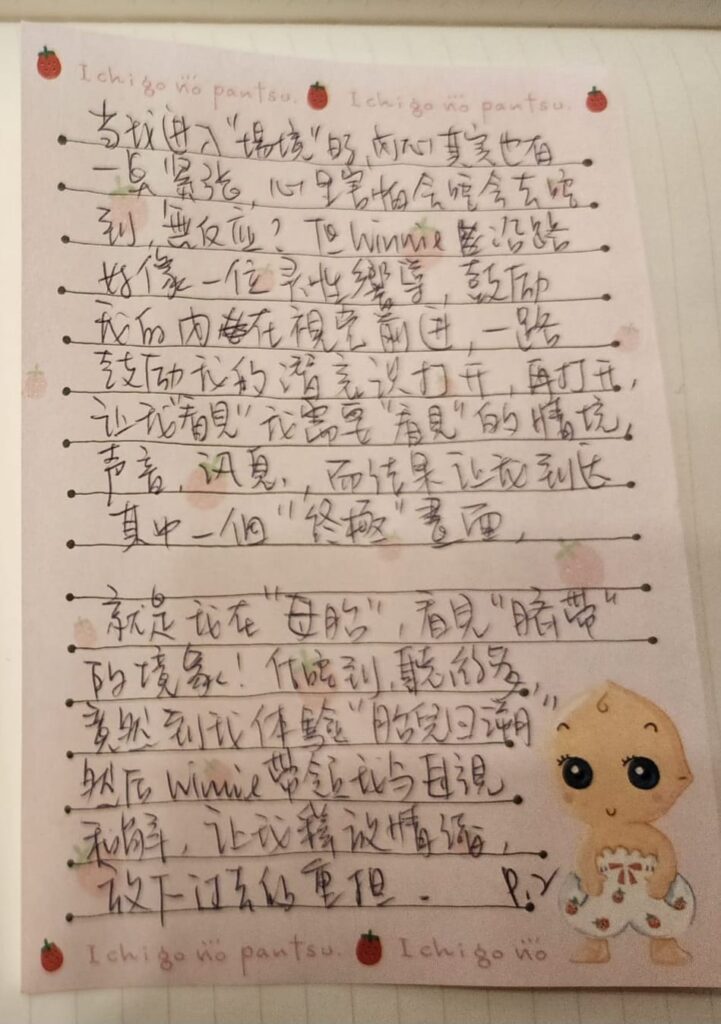 Ichigo no pantsu. Ichigo no pantsu.
当我进入"場境"时,内心真实也有
一点緊张,心里害怕会唔会去唔
到,無反应?但Winnie沿路
好像一位灵性嚮導,鼓励
我的内在視觉前进,一路
鼓励我的潛意识打开,再打开,
让我"看見"我需要"看見"的情境,
声音,讯息,而结果让我到达
其中一個"終極"畫面,
就是我在"母胎",看見"臍帶"
的境象!估唔到,聽的多,
竟然到我体驗"胎兒回溯"
然后Winnie帶領我与母親
和解,让我釋放情緒,
放下过去的重担.
P.2
Ichigo no pantsu. Ichigo no